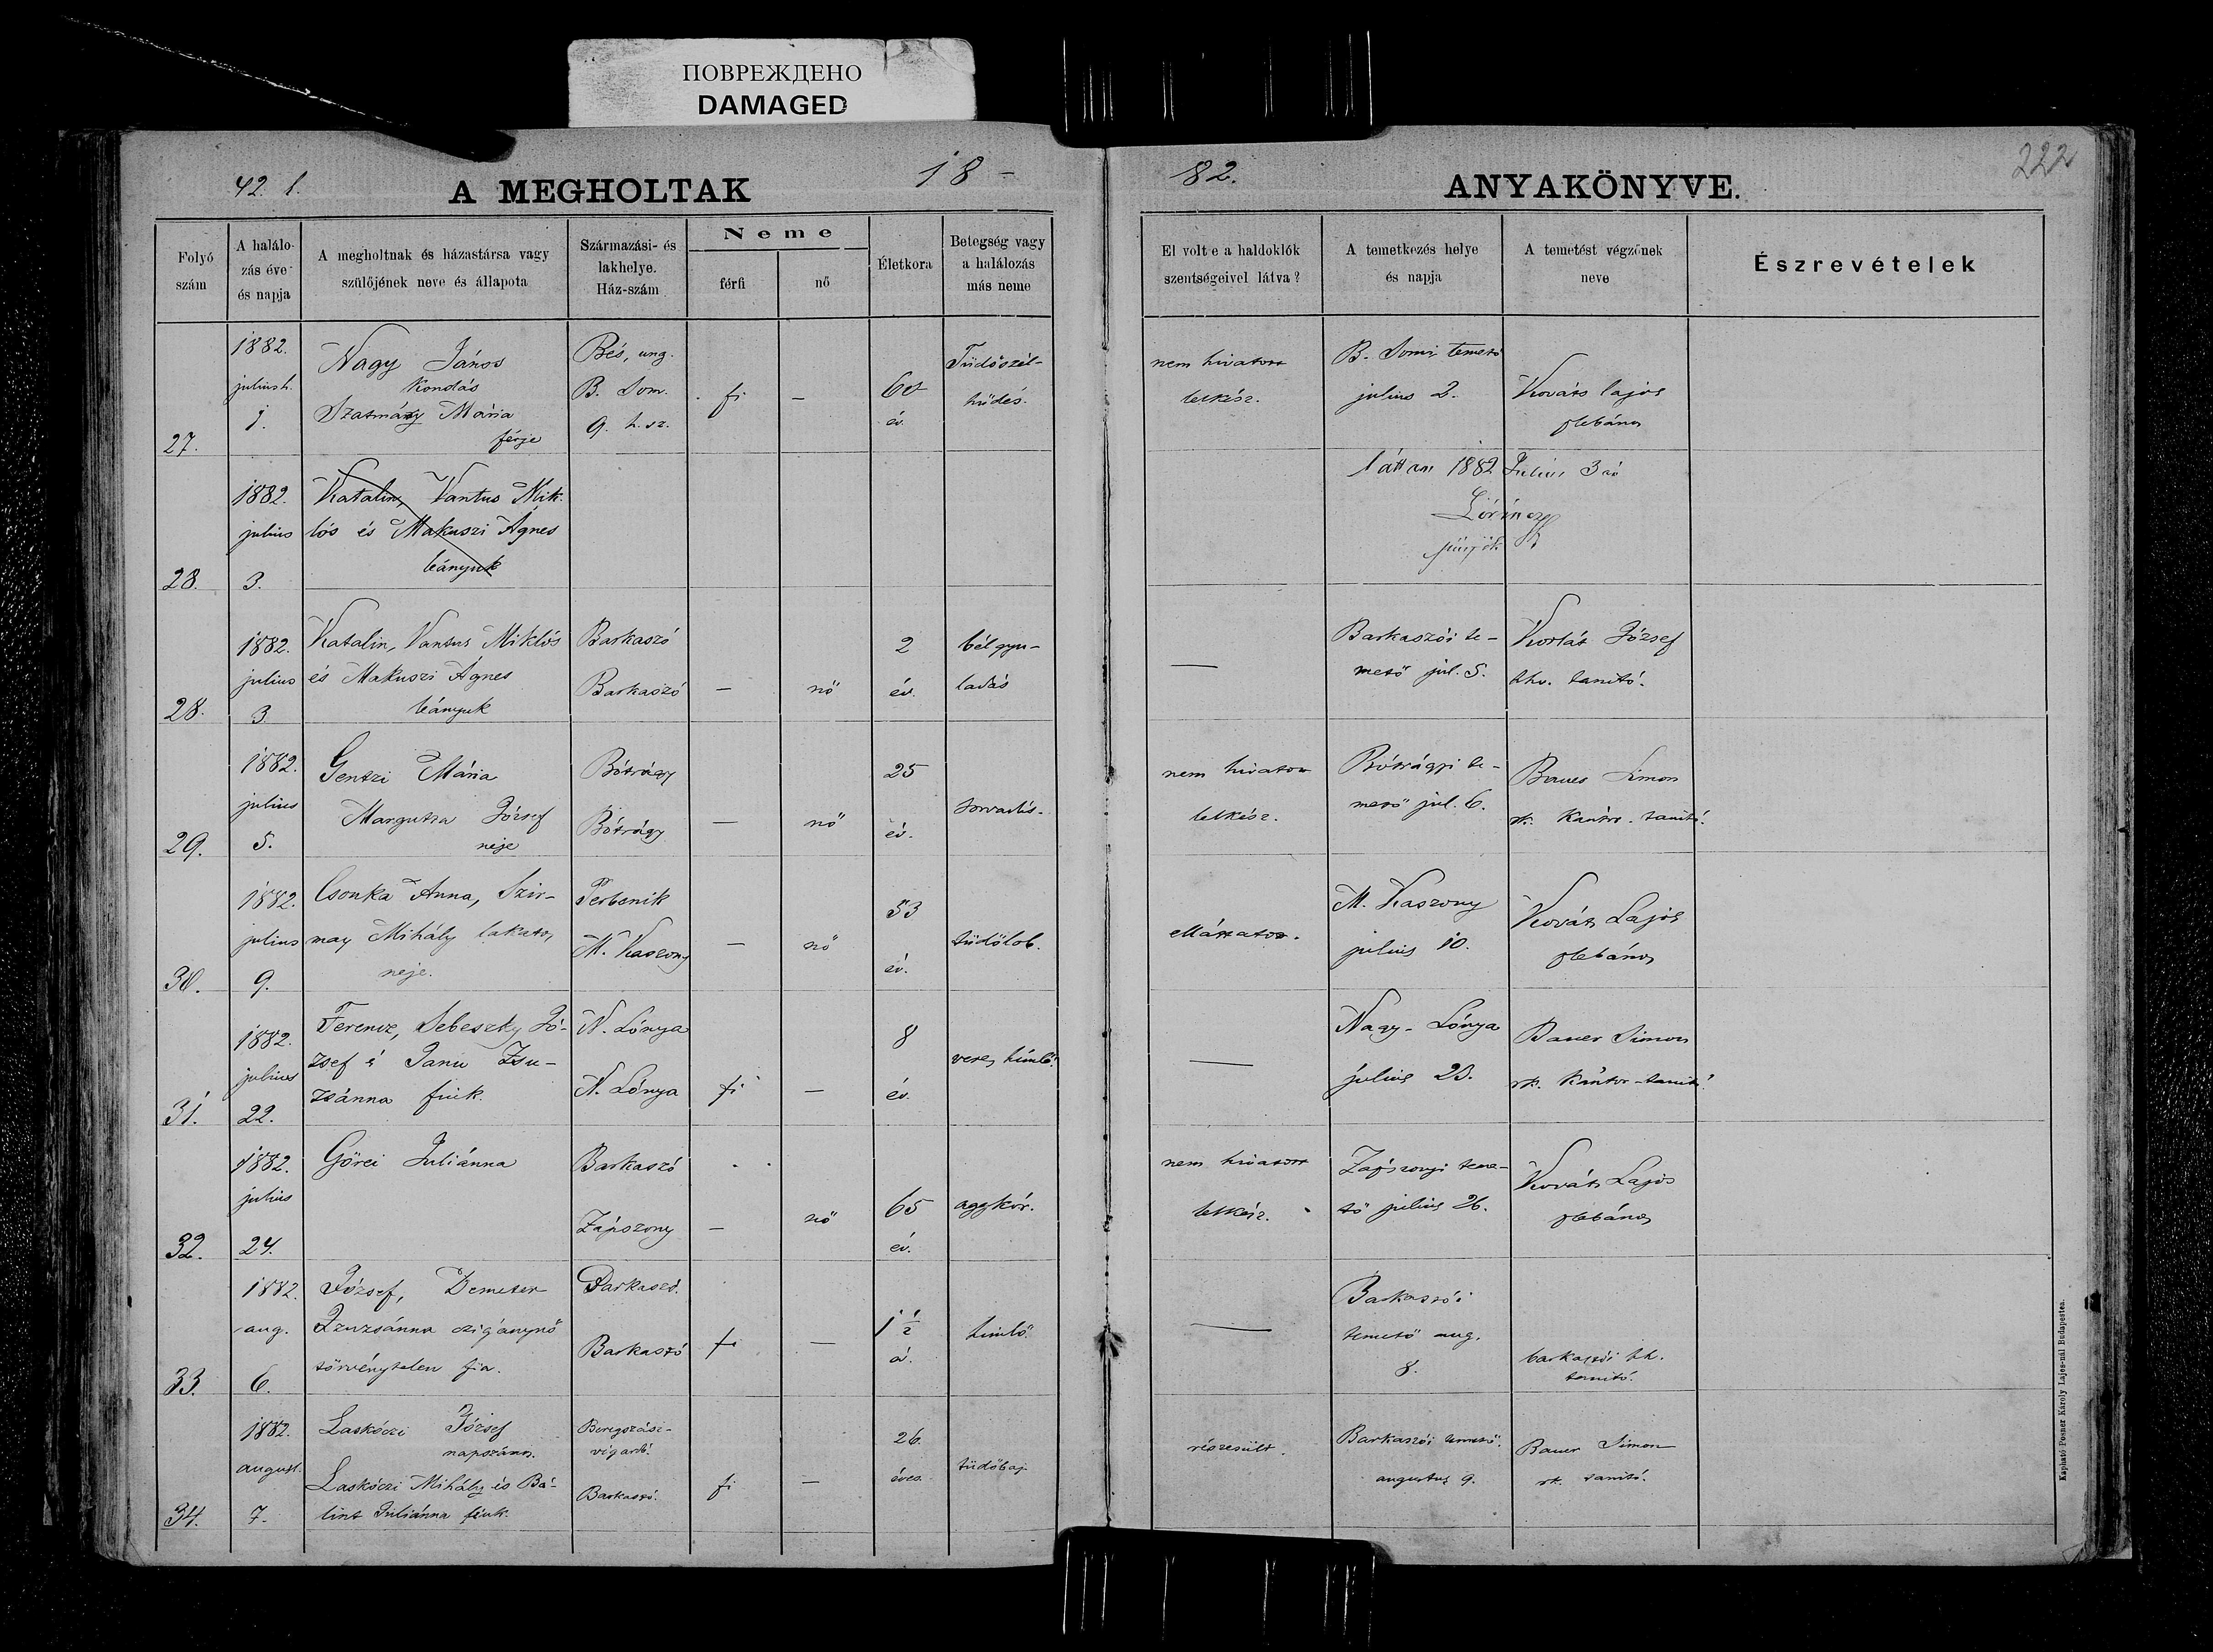 ПОВРЕЖДЕНО
DAMAGED
42. l.
A MEGHOLTAK
18-
82.
ANYAKÖNYVE.
222
Folyó szám
A halálozás éve és napja
A megholtnak és házastársa vagy szülőjének neve és állapota
Származási- és lakhelye. Ház-szám
Neme
férfi
nő
Életkora
Betegség vagy a halálozás más neme
El volt e a haldoklók szentségeivel látva?
A temetkezés helye és napja
A temetést végzőnek neve
Észrevételek
27.
1882.
julius h.
1.
Nagy János
kondás
Szatmáry Mária
férje
Bés, ung.
B. Som.
9. h. sz.
fi
—
60
év.
Tüdőszél-
hüdés.
nem hivatott
lelkész.
B. Somi temető
julius 2.
Kováts Lajos
plebános
28.
1882.
julius
3.
Katalin, Vantus Mik-
lós és Makuszi Ágnes
leányuk
láttam 1882 Julius 3án
Lőrincz
püspök
28.
1882.
julius
3.
Katalin, Vantus Miklós
és Makuszi Ágnes
leányuk
Barkaszó
Barkaszó
—
nő
2
év.
bélgyu-
ladás
—
Barkaszói te-
mető jul. 5.
Korlát József
hhv. tanító.
29.
1882.
julius
5.
Gentzi Mária
Margutsa József
neje
Bótrágy
Bótrágy
—
nő
25
év.
sorvadás.
nem hivatott
lelkész.
Bótrágyi te-
mető jul. 6.
Bauer Simon
rk. kántor-tanító.
30.
1882.
julius
9.
Csonka Anna, Szir-
may Mihály lakatos
neje.
Perbenik
M. Kaszony
—
nő
53
év.
tüdőlob.
elláttatott.
M. Kaszony
julius 10.
Kováts Lajos
plebános
31.
1882.
julius
22.
Ferencz, Sebeszky Jó-
zsef és Panu Zsu-
zsánna fiuk.
N. Lónya
N. Lónya
fi
—
8
év.
veres himlő.
—
Nagy-Lónya
julius 23.
Bauer Simon
rk. kántor-tanító
32.
1882.
julius
24.
Görei Juliánna
Barkaszó
Zápszony
—
nő
65
év.
aggkór.
nem hivatott
lelkész.
Zápszonyi teme-
tő julius 26.
Kováts Lajos
plebános
33.
1882.
aug.
6.
József, Demeter
Zsuzsánna czigánynő
törvénytelen fia.
Barkaszó.
Barkaszó
fi
—
1 1/2
év.
himlő.
—
Barkaszói
temető aug.
8.
barkaszói hh.
tanító.
34.
1882.
august.
7.
Laskóczi József
napszámos.
Laskóczi Mihály és Bá-
lint Juliánna fiuk.
Beregszász-
végardó.
Barkaszó.
fi
—
26.
éves.
tüdőbaj
részesült.
Barkaszói temető.
augustus 9.
Bauer Simon
rk. tanító.
Kapható Posner Károly Lajos-nál Budapesten.